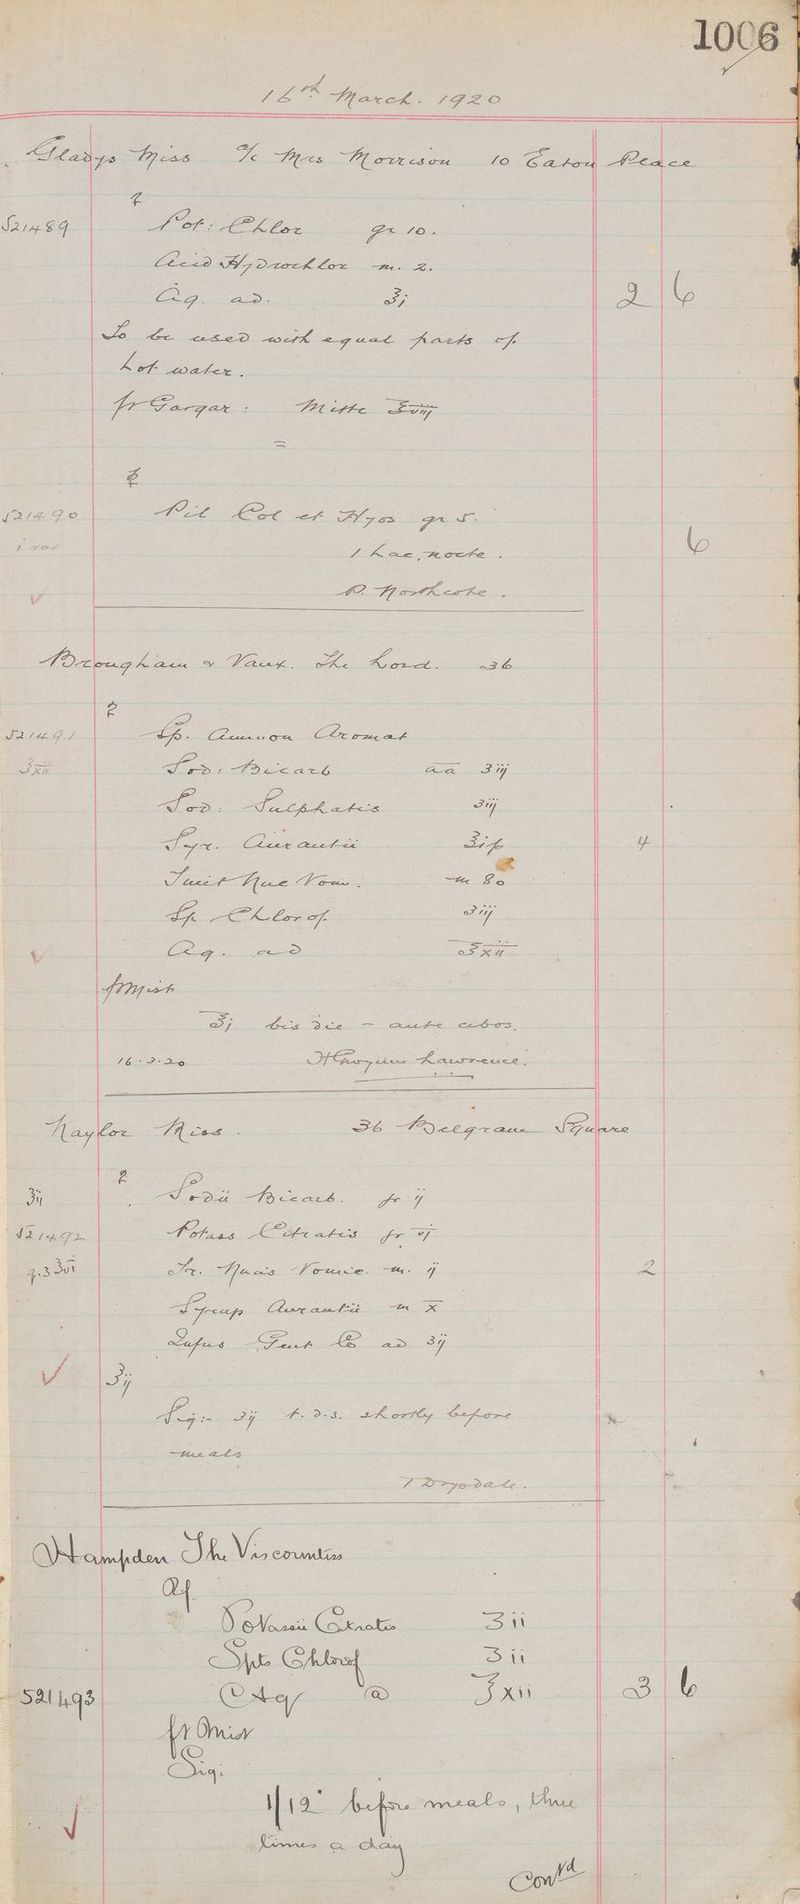 1006
16th March. 1920
Gladys Miss a/c Mrs Morrison 10 Eaton Place
℞
521489 Pot: Chlor gr 10.
Acid Hydrochlor m. 2.
Aq. ad. ʒi 2 6
To be used with equal parts of
hot water.
ft Gargar: Mitte ℥viij
=
℞
521490 Pil Col et Hyos gr 5.
1 hac, nocte. 6
P. Northcote.
Brougham & Vaux. The Lord. 36
℞
521491 Sp. Ammon Aromat
℥xii Sod: Bicarb aa ʒiij
Sod: Sulphatis ʒiij
Syr. Aurantii ℥iſs 4
Tinct Nuc Vom. m 80
Sp Chlorof ʒiij
Aq. ad ℥xii
ft Mist
℥j bis die - ante cibos.
16.3.20 H Gwynne Lawrence.
Naylor Miss. 36 Belgrave Square
℞
℥ij Sodii Bicarb. gr ij
521492 Potass Citratis gr vj
Tr. Nucis Vomic. m. ij 2
Syrup Aurantii m x
Infus Gent Co ad ʒij
℥ij
Sig:- ʒij t.d.s. shortly before
meals
T Drysdale.
Hampden The Viscountess
Rf.
Potassii Citratis ʒii
Spts Chlorof ʒii
521493 Aq @ ℥xii 3 6
ft Mist
Sig:
1/12" before meals, three
times a day
Contd